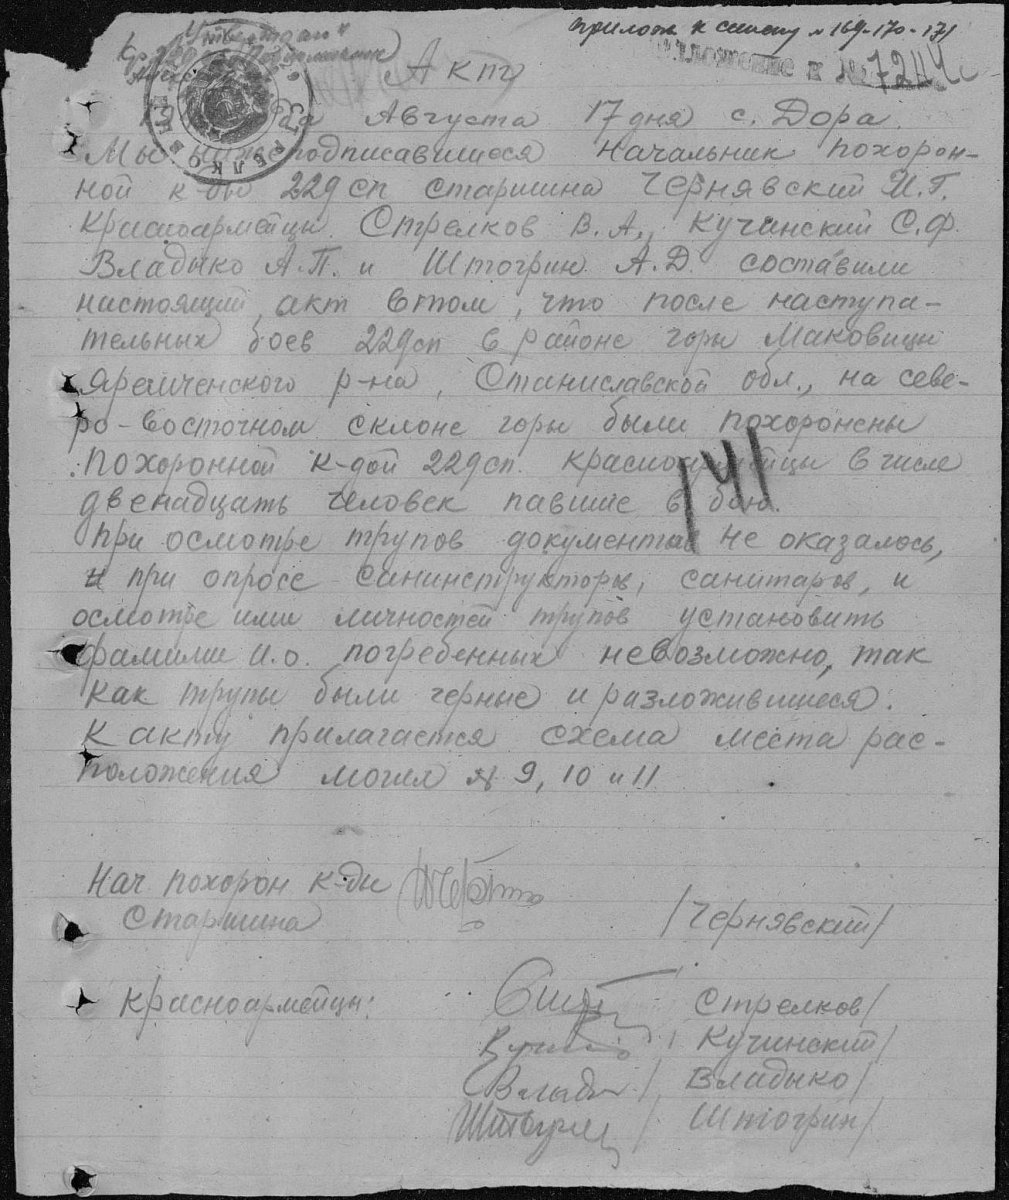 прилож к списку № 169-170-171
"Утверждаю"
приложение к № 7244с
Акт
Августа 17 дня с. Дора.
Мы нижеподписавшиеся начальник похорон-
ной к-ды 229 сп старшина Чернявский И.Г.
красноармейцы Стрелков В.А., Кучинский С.Ф.
Владыко А.П. и Штогрин А.Д. составили
настоящий акт в том, что после наступа-
тельных боев 229 сп в районе горы Маковицы
Яремченского р-на, Станиславской обл., на севе-
ро-восточном склоне горы были похоронены
похоронной к-дой 229 сп. красноармейцы в числе
двенадцать человек павшие в бою.
141
При осмотре трупов документы не оказалось,
и при опросе санинструкторов, санитаров, и
осмотре ими личностей трупов установить
фамилии и.о. погребенных невозможно, так
как трупы были черные и разложившиеся.
К акту прилагается схема места рас-
положения могил № 9, 10 и 11
Нач похорон к-ды
старшина /Чернявский/
красноармейцы: Стрелков/
/Кучинский/
/Владыко/
/Штогрин/
СТРЕЛКОВЫЙ